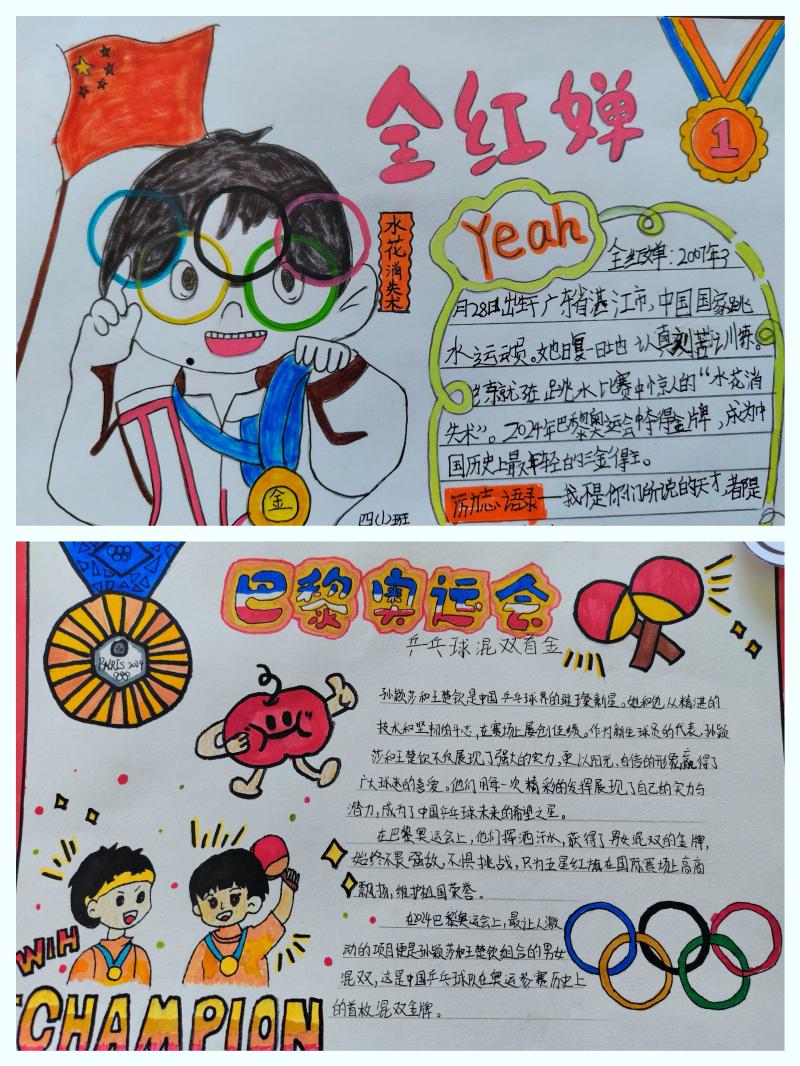 全红婵
1
水花消失术
Yeah
全红婵：2007年3
月28日出生于广东省湛江市，中国国家跳
水运动员。她日复一日地认真刻苦训练。
就在跳水比赛中惊人的“水花消
失术”。2024年巴黎奥运会中夺得金牌，成为中
国历史上最年轻的三金得主。
励志语录——我不是你们所说的天才，都是
金
四(1)班
巴黎奥运会
乒乓球混双首金
PARIS 2024
孙颖莎和王楚钦是中国乒乓球界的璀璨新星。她和他，以精湛的
技术和坚韧的斗志，在赛场上屡创佳绩。作为新生球员的代表，孙颖
莎和王楚钦不仅展现了强大的实力，更以阳光、自信的形象赢得了
广大球迷的喜爱。他们用每一次精彩的发挥展现了自己的实力与
潜力，成为了中国乒乓球未来的希望之星。
在巴黎奥运会上，他们挥洒汗水，获得了男女混双的金牌，
始终不畏强敌，不惧挑战，只为五星红旗在国际赛场上高高
飘扬，维护祖国荣誉。
在2024巴黎奥运会上，最让人激
动的项目便是孙颖莎和王楚钦组合的男女
混双，这是中国乒乓球队在奥运参赛历史上
的首枚混双金牌。
WIH
CHAMPION